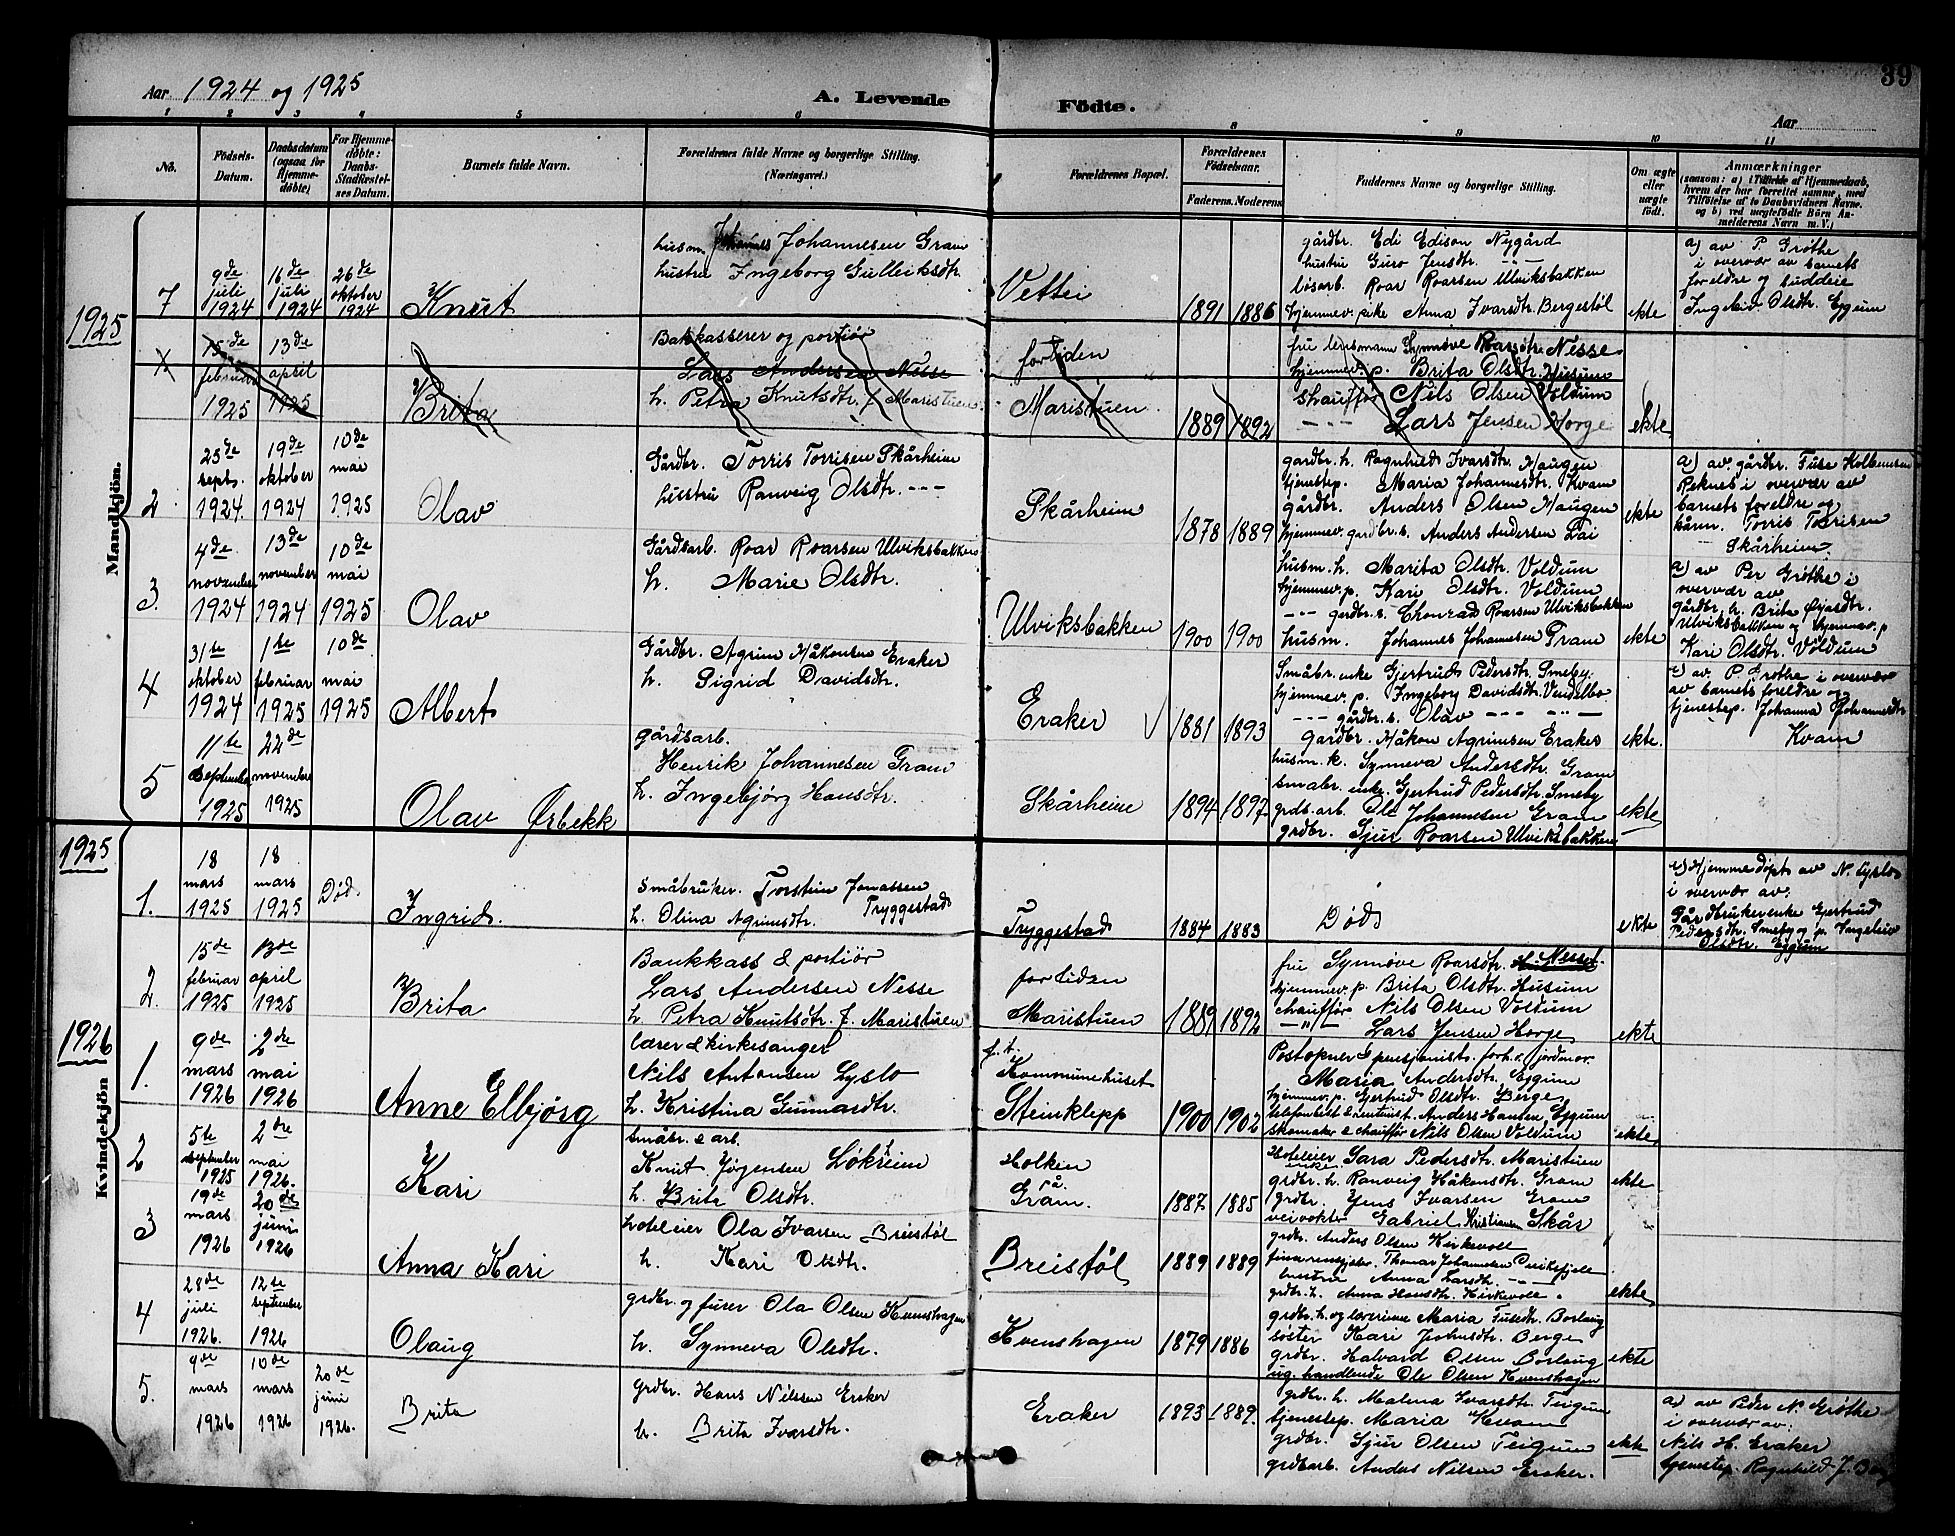 39
Aar 1924 og 1925
A. Levende Födte.
Aar
1 2 3 4 5 6 8 9 10 11
No.
Födsels-Datum.
Daabsdatum (ogsaa for Hjemme-döbte)
For Hjemme-döbte: Daabs-Stadfæstel-ses Datum.
Barnets fulde Navn.
Forældrenes fulde Navne og borgerlige Stilling.
(Næringsvei.)
Forældrenes Bopæl.
Forældrenes Födselsaar.
Faderens. Moderens.
Faddernes Navne og borgerlige Stilling.
Om ægte eller uægte födt.
Anmærkninger
(saasom: a) i Tilfælde af Hjemmedaab,
hvem der har forrettet samme, med
Tilföielse af to Daabsvidners Navne.
og b) ved uægtefödte Börn An-
melderens Navn m. V.)
Mandkjön.
1925
7
9de juli 1924
16de juli 1924
26de oktober 1924
Knut
husm Johannes Johannesen Gram
hustru Ingeborg Gulleiksdtr.
Vetti
1891 1886
gårdbr. Edi Edison Nygård
hustru Guro Jensdtr. - -
løsarb. Roar Roarsen Ulviksbakken
hjemmev. pike Anna Ivarsdtr. Bergestøl
ekte
a) av P. Grøthe
i overvær av barnets
foreldre og budeie
Ingleiv Olsdtr. Eggum
15de februar 1925
13de april 1925
Brita
Bankkasserer og portiør
Lars Andersen Nesse
h. Petra Knutsdtr. f. Maristuen
for tiden
Maristuen
1889 1892
fru lensmann Synnøve Roarsdtr. Nesse
hjemmev. p. Brita Olsdtr. Husum
chauffør Nils Olsen Voldum
- - - Lars Jensen Horge
ekte
2
25de septb. 1924
19de oktober 1924
10de mai 1925
Olav
Gårdbr. Torris Torrisen Skårheim
hustru Ranveig Olsdtr. - - -
Skårheim
1878 1889
gardbr. h. Ragnhild Ivarsdtr. Maugen
tjenestep. Maria Johannesdtr. Kvam
gårdbr. Anders Olsen Maugen
hjemmev. gardbr. s. Anders Andersen Lai
ekte
a) av. gårdbr. Fuse Kolbensen
Reknes i overvær av
barnets foreldre og
Torris Torrisen
Skårheim.
3.
4de november 1924
13de november 1924
10de mai 1925
Olav
Gårdsarb. Roar Roarsen Ulviksbakken
h. Marie Olsdtr.
Ulviksbakken
1900 1900
husm. h. Marita Olsdtr. Voldum
hjemmev. p. Kari Olsdtr. Voldum
- - - gardbr. s. Chonrad Roarsen Ulviksbakken
husm. Johannes Johannesen Gram
ekte
a) av Per Grøthe i
overvær av
gårdbr. h. Brita
Ulviksbakken og hjemmev. p
Kari Olsdtr. Voldum
4
31te oktober 1924
1ste februar 1925
10de mai 1925
Albert
Gårdbr. Agrim Håkonsen Eraker
h. Sigrid Davidsdtr.
Eraker
1881 1893
Småbr. enke Gjertrud Pedersdtr. Smeby
hjemmev. p. Ingeborg Davidsdtr. Vendelbo
- - - gårdbr. s. Olav - - - - " -
Gårdbr. Håkon Agrimsen Eraker
ekte.
a) av. P. Grøthe i overvær
av barnets foreldre og
tjenestep. Johanna Johannesdtr
Kvam
5
11te september 1925
22de november 1925
Olav Ørbekk
gårdsarb.
Henrik Johannesen Gram
h. Ingebjørg Hansdtr.
Skårheim
1894 1897
husm. k. Synneva Andersdtr. Gram
smabr. enke Gjertrud Pedersdtr. Smeby
grds. arb. Ole Johannesen Gram
grdbr. Sjur Roarsen Ulviksbakken
ekte
1925
Kvindekjön
1.
18 mars 1925
18 mars 1925
Død.
Ingrid.
Småbruker. Torstein Jonassen
Tryggestad
h. Olina Agrimsdtr.
Tryggestad
1884 1883
Død
ekte
a) Hjemmedøpt av N. Lyslo
i overvær av.
Gårdbrukerenke Gjertrud
Pedersdtr. Smeby og p. Ingleiv
Olsdtr. Eggum
2.
15de februar 1925
13de april 1925
Brita
Bankkass & portiør
Lars Andersen Nesse
h. Petra Knutsdtr. f. Maristuen
for tiden
Maristuen
1889 1892
fru Synnøve Roarsdtr. Nesse.
hjemmev. p. Brita Olsdtr. Husum
chauffør Nils Olsen Voldum
- " - Lars Jensen Horge
ekte
1926
1.
9de mars 1926
2den mai 1926
Anne Elbjörg
lærer & kirkesanger
Nils Antonsen Lyslo
h. Kristina Gunnardtr.
f. t.
Kommunehuset
Steinklepp
1900 1902
Postopner & pensjonist. forh. v. jordmor.
Maria Andersdtr. Eggum
hjemmev. p. Gjertrud Olsdtr. Berge
Anders Hansen Eggum
skomaker & chauffør Nils Olsen Voldum
ekte
2
5te september 1925
2den mai 1926.
Kari
småbr. & arb.
Knut Jørgensen Løkreim
h. Brita Olsdtr.
Holken
på
Gram.
1887 1885
Hoteleier enke Sara Pedersdtr. Maristuen
grdbr. h. Ranveig Håkensdtr. Gram
grdbr. Jens Ivarsen Gram
veivokter Gabriel Kristiansen Skår
ekte
3
19de mars 1926
20de juni 1926
Anna Kari
hoteleier Ola Ivarsen Breistøl
h. Kari Olsdtr.
Breistøl
1889 1889
grdbr. Anders Olsen Kirkevoll
Thomas Johannesen
hustru Anna Larsdtr. - - -
grdbr. h. Anna Hansdtr. Kirkevoll.
ekte
4
28de juli 1926.
12te september 1926
Olaug
grdbr. og furer Ola Olsen Kvenshagen
h. Synneva Olsdtr.
Kvenshagen
1879 1886
grdbr. h. og lærerinne Maria Fusedtr. Borlaug
søster Kari Jensdtr. Berge
grdbr. Halvard Olsen Borlaug
ug. handlende Ole Olsen Kvenshagen
ekte
5.
9de mars 1926
10de mars 1926
20de juni 1926.
Brita
grdbr. Hans Nilssen Eraker
h. Brita Ivarsdtr.
Eraker
1893 1889.
grdbr. h. Malena Ivarsdtr. Teigum
tjenestep. Maria Kvam
grdbr. Sjur Olsen Teigum
grdsarb. Andas Nilsen Eraker.
ekte
a) av Peder N. Grøthe
i overvær av:
Nils H. Eraker
tjenestep. Ragnhild J. Berg